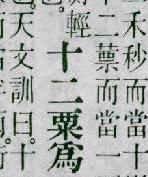 禾秒而當十
二蔈而當一
輕
十二粟爲
天文訓曰十